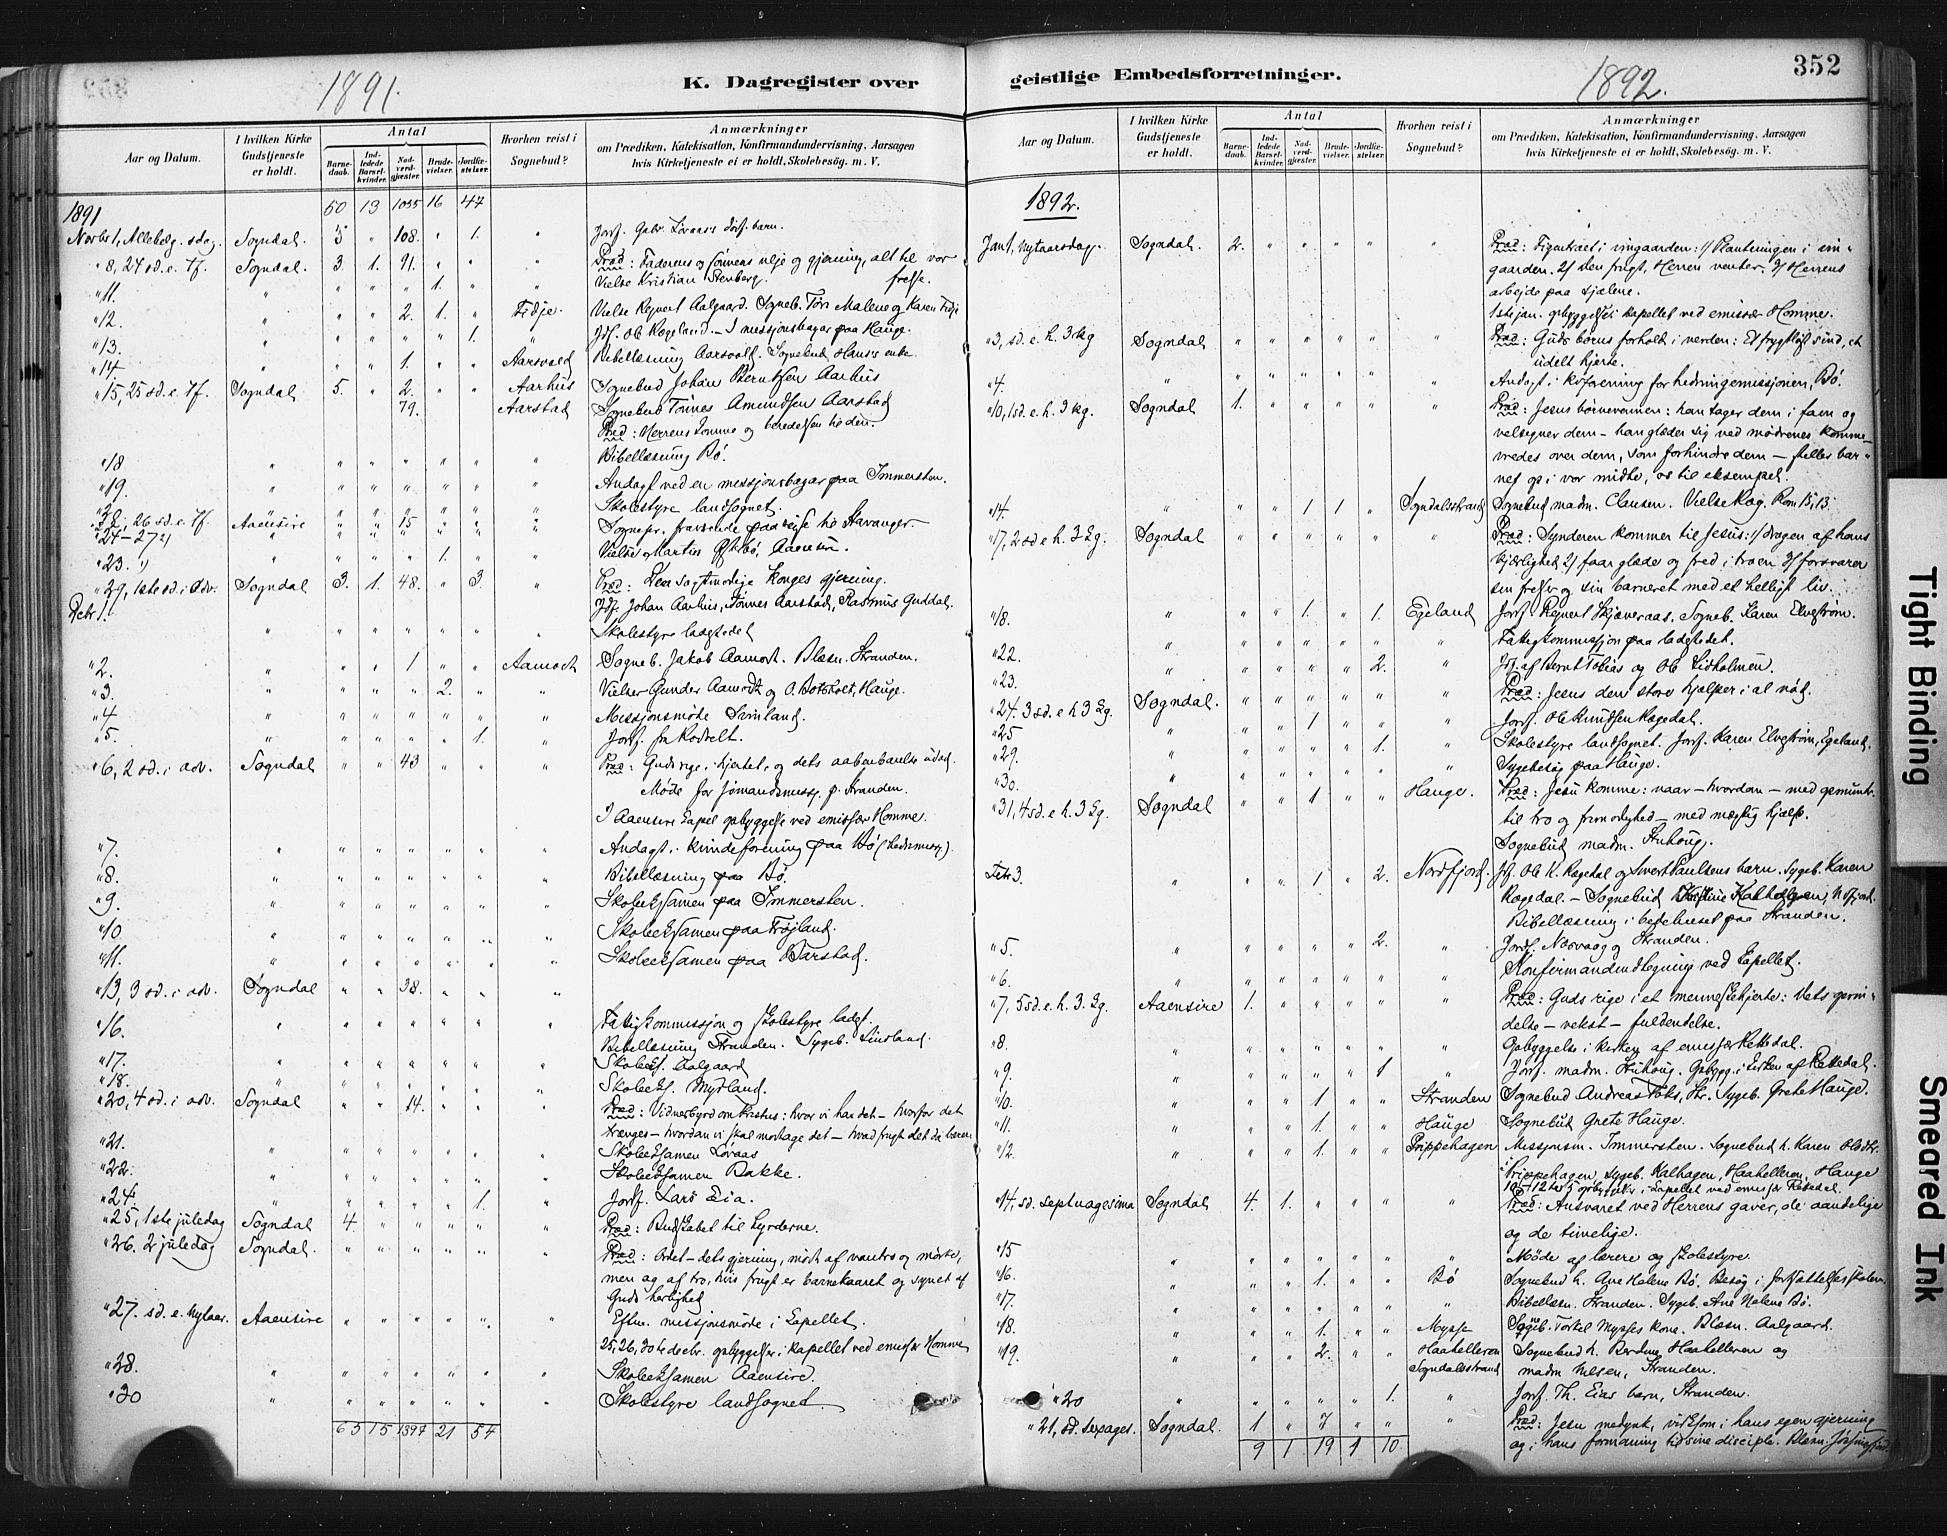 352
1891.
K. Dagregister over
geistlige Embedsforretninger.
1892.
Aar og Datum.
I hvilken Kirke Gudstjeneste er holdt.
Antal
Barnedaab.
Indledede Barselkvinder.
Nadverdgjæster
Brudevielser.
Jordfæstelser.
Hvorhen reist i Sognebud?
Anmærkninger
om Prædiken, Katekisation, Konfirmandundervisning, Aarsagen
hvis Kirketjeneste ei er holdt, Skolebesög. m. V.
1891 13 1055 16 47
Novbr 1, Allehelg. sdag. Sogndal. 5 " 108. " 1. "
" 8, 24 sd. e. Tf. Sogndal. 3. 1. 91. " " " Præd: Faderens og sønnens vilje og gjerning, alt til vor
" 11. " " " " 1. " " Vielse Kristian Stenberg. frelse.
" 12. " " " 2. 1. " Fidje.
" 13. " " " " " 1. "
" 14. " " " 1. " " Aarsvold Bibellæsning Aarsvold. Sognebud Hans's enke
" 15, 25 sd. e. Tf. Sogndal 5. " 2. " " Aarhus Sognebud Johan Berntsen Aarhus
79. Aarstad Sognebud Tönnes Amundsen Aarstad
" 18 " " " " " " " Bibellæsning Bö.
" 19. " " " " " " " Andagt ved en missjonsbasar paa Immersten.
Skolestyre landsognet.
" 22, 26 sd. e. Tf. Aaensire " " 15 " " " Sognepr. fraværende paa reise til Stavanger
" 24-27 "
" 23. " " " " 1. " " Vielse Martin Østebö, Aaensire.
" 29, 1ste sd. i Adv. Sogndal 3. 1. 48. " 3. " Præd: Den sagtmodige Konges gjerning.
Jdf. Johan Aarhus, Tönnes Aarstad, Rasmus Guddal.
Debr 1. " " " " " " " Skolestyre ladestedet
" 2. " " " 1 " " Aamodt Sogneb. Jakob Aamodt. Blæsn. Stranden.
" 3. " " " " 2. " " Vielser Gunder Aamodt og O. Botsholt, Hauge.
" 4 " " " " " " " Missjonsmöde
" 5. " " " " " 1. " Jordf. fra Rodvelt.
" 6, 2 sd. i adv. Sogndal " " 43 " " " Præd: Guds rige i hjertet, og dets aabenbarelse udad.
Möde for sømandsmiss. p. Stranden.
I Aaensire kapel opbyggelse ved emissær Homme.
" 7. " " " " " " " Andagt i kvindeforening paa Bö (hednmiss).
" 8. " " " " " " " Bibellæsning paa Bö.
" 9. " " " " " " " Skoleeksamen paa Immersten.
" 10 " " " " " " " Skoleeksamen paa Frøjland.
" 11. " " " " " " " Skoleeksamen paa Barstad.
" 13, 3 sd. i adv. Sogndal " " 38. " " "
" 16. " " " " " " " Fattigkommissjon og skolestyre ladst.
Bibellæsning Stranden. Sygeb. Lindland.
" 17. " " " " " " " Skoleeks. Aalgaard
" 18. " " " " " " " Skoleeks. Mydland.
" 20, 4 sd. i adv. Sogndal " " 14. " " " Præd: Vidnesbyrd om Kristus: hvor vi har det - hvorfor det
trænges - hvordan vi skal modtage det - hvad frugt det da bærer
" 21. " " " " " " " Skoleeksamen Lovaas
" 22. " " " " " " " Skoleeksamen Bakke.
" 24. " " " " " 1. " Jordf. Lars Eia.
" 25, 1ste juledag Sogndal 4. " " " " " Præd: Budskabet til hyrderne.
" 26. 2 juledag Sogndal. " " " " " " Præd: Ordet - dets gjerning, mödt af vantro og mörke,
men og af tro, hvis frugt er barnekaaret og synet af
Guds herlighed
" 27. sd. e. nytaar. Aaensire " " " " " " Eftm. missjonsmöde i kapellet.
25, 26, 30te decbr. opbyggelser i kapellet ved emissær Homme
" 28. " " " " " " " Skoleeksamen Aaensire.
" 30 " " " " " " " Skolestyre landsognet.
65 15 1394 21 54
Aar og Datum.
I hvilken Kirke Gudstjeneste er holdt.
Antal
Barnedaab.
Indledede Barselkvinder.
Nadverdgjæster.
Brudevielser.
Jordfæstelser.
Hvorhen reist i Sognebud?
Anmærkninger
om Prædiken, Katekisation, Konfirmandundervisning, Aarsagen
hvis Kirketjeneste ei er holdt, Skolebesög. m. V.
1892.
Jan 1, nytaarsdag. Sogndal. 2. " " " " " Præd: Figentræet i vingaarden: 1/ Plantningen i vin-
gaarden. 2/ Den frugt, Herren venter. 3/ Herrens
arbejde paa sjælene.
1ste jan. opbyggelse i kapellet ved emissær Homme.
" 3, sd. e. h. 3 kg Sogndal " " " " " " Præd: Guds börns forhold i verden: Et frygtlöst sind, et
udelt hjerte.
" 4. " " " " " " " Andagt i kvforening for hedningemissjonen, Bö.
" 10, 1 sd. e. h. 3 kg. Sogndal 1. " " " " " Præd: Jesus börnevennen: han tager dem i favn og
velsigner dem - han glæder sig ved mödrenes komme -
vredes over dem, som forhindre dem - stilles bar-
net op i vor midte, os til eksempel.
" 14. " " " 1 1 " Sogndalsstrand Sognebud madm. Clausen. Vielse Rög. Rom 15,13.
" 17, 2 sd e h. 3 kg. Sogndal " " " " " " Præd: Synderen kommer til Jesus: 1/ dragen af hans
kjærlighed 2/ faar glæde og fred i troen 3/ forsvarer
sin frelser og sin barneret med et helligt liv.
" 18. " " " 1. " 1. Egeland Jordf. Rejnert Skjæveraas. Sogneb. Karen Elvestrøm.
" 22. " " " " " " " Fattigkommissjon paa ladestedet.
" 23. " " " " " 2. " Jdf. af Bernt Tobias og Ole Lidholmen.
" 24. 3 sd. e h 3 kg. Sogndal. " " " " " " Præd: Jesus den store hjælper i al nöd.
" 25 " " " 1 " " " Jordf. Ole Knudsen Rægedal.
" 29. " " " " " 1. " Skolestyre landsognet. Jordf. Karen Elvestrøm, Egeland.
" 30. " " " " " " " Sygebesög paa Hauge.
" 31, 4 sd. e h. 3 kg. Sogndal " " 1 " " Hauge. Præd: Jesu komme: naar - hvordan - med opmuntr.
til tro og frimodighed - med mægtig hjælp.
Sognebud madm. Stuhoug.
Febr 3. " " " 1 " 2. Nordfjord. Jdf. Ole K. Rægedal og Sivert Paulsens barn. Sygeb. Karen
Rægedal. - Sognebud Nofjord.
Bibellæsning i bedehuset paa Stranden.
" 5. " " " " " 2. " Jordf. Næsvaag og Stranden.
" 6. " " " " " " " Konfirmandudtegning ved kapellet.
" 7, 5 sd. e. h. 3. kg. Aaensire 1. " " " " " Præd: Guds rige i et menneskehjerte: Dets oprin-
delse - vekst - fuldendelse.
" 8. " " " " " " " Opbyggelse i kirken af emissær Rettedal.
" 9. " " " " " 1 " Jordf. madm. Stuhoug. Opbygg. i kirken af Rettedal.
" 10. " " " 1. " " Stranden Sognebud Andreas Foks, Str. Sygeb. Grete Hauge.
" 11. " " " 1. " " Hauge Sognebud Grete Hauge.
" 12. " " " 1. " " Prippehagen Missjonsm. Immersten. Sognebud h. Karen
Prippehagen, sygeb. Kalhagen, Haahelleren, Hauge
10-12te 5 opbyggelser i kapellet ved emissær Rettedal.
" 14, sd. septuagesima Sogndal 4. 1. " " " " Præd: Ansvaret ved Herrens gaver, de aandelige
og de timelige.
" 15 " " " " " " " Möde af lærere og skolestyre.
" 16. " " " 1. " " Bö Sognebud h. Ane Helene Bö. Besög i fortsættelsesskolen.
" 17. " " " " " " " Bibellæsn. Stranden. Sygeb. Ane Helene Bö.
" 18. " " " 1. " " Mysse Sogneb. Torkel Mysses kone. Blæsn. Aalgaard.
" 19. " " " 2. " " Haahelleren Sognebud h. Berdine Haahelleren og
Sogndalsstrand madm Nelsen, Stranden.
" 20 " " " " " 1. " Jordf. Th. Eias barn, Stranden.
" 21, sd. sexages. Sogndal. 1 " 7 " " " Præd: Jesu medynk, virksom i hans egen gjerning
og i hans formaning til sine disciple. Blæsn.
9 1 19 1 10
Tight Binding
Smeared Ink